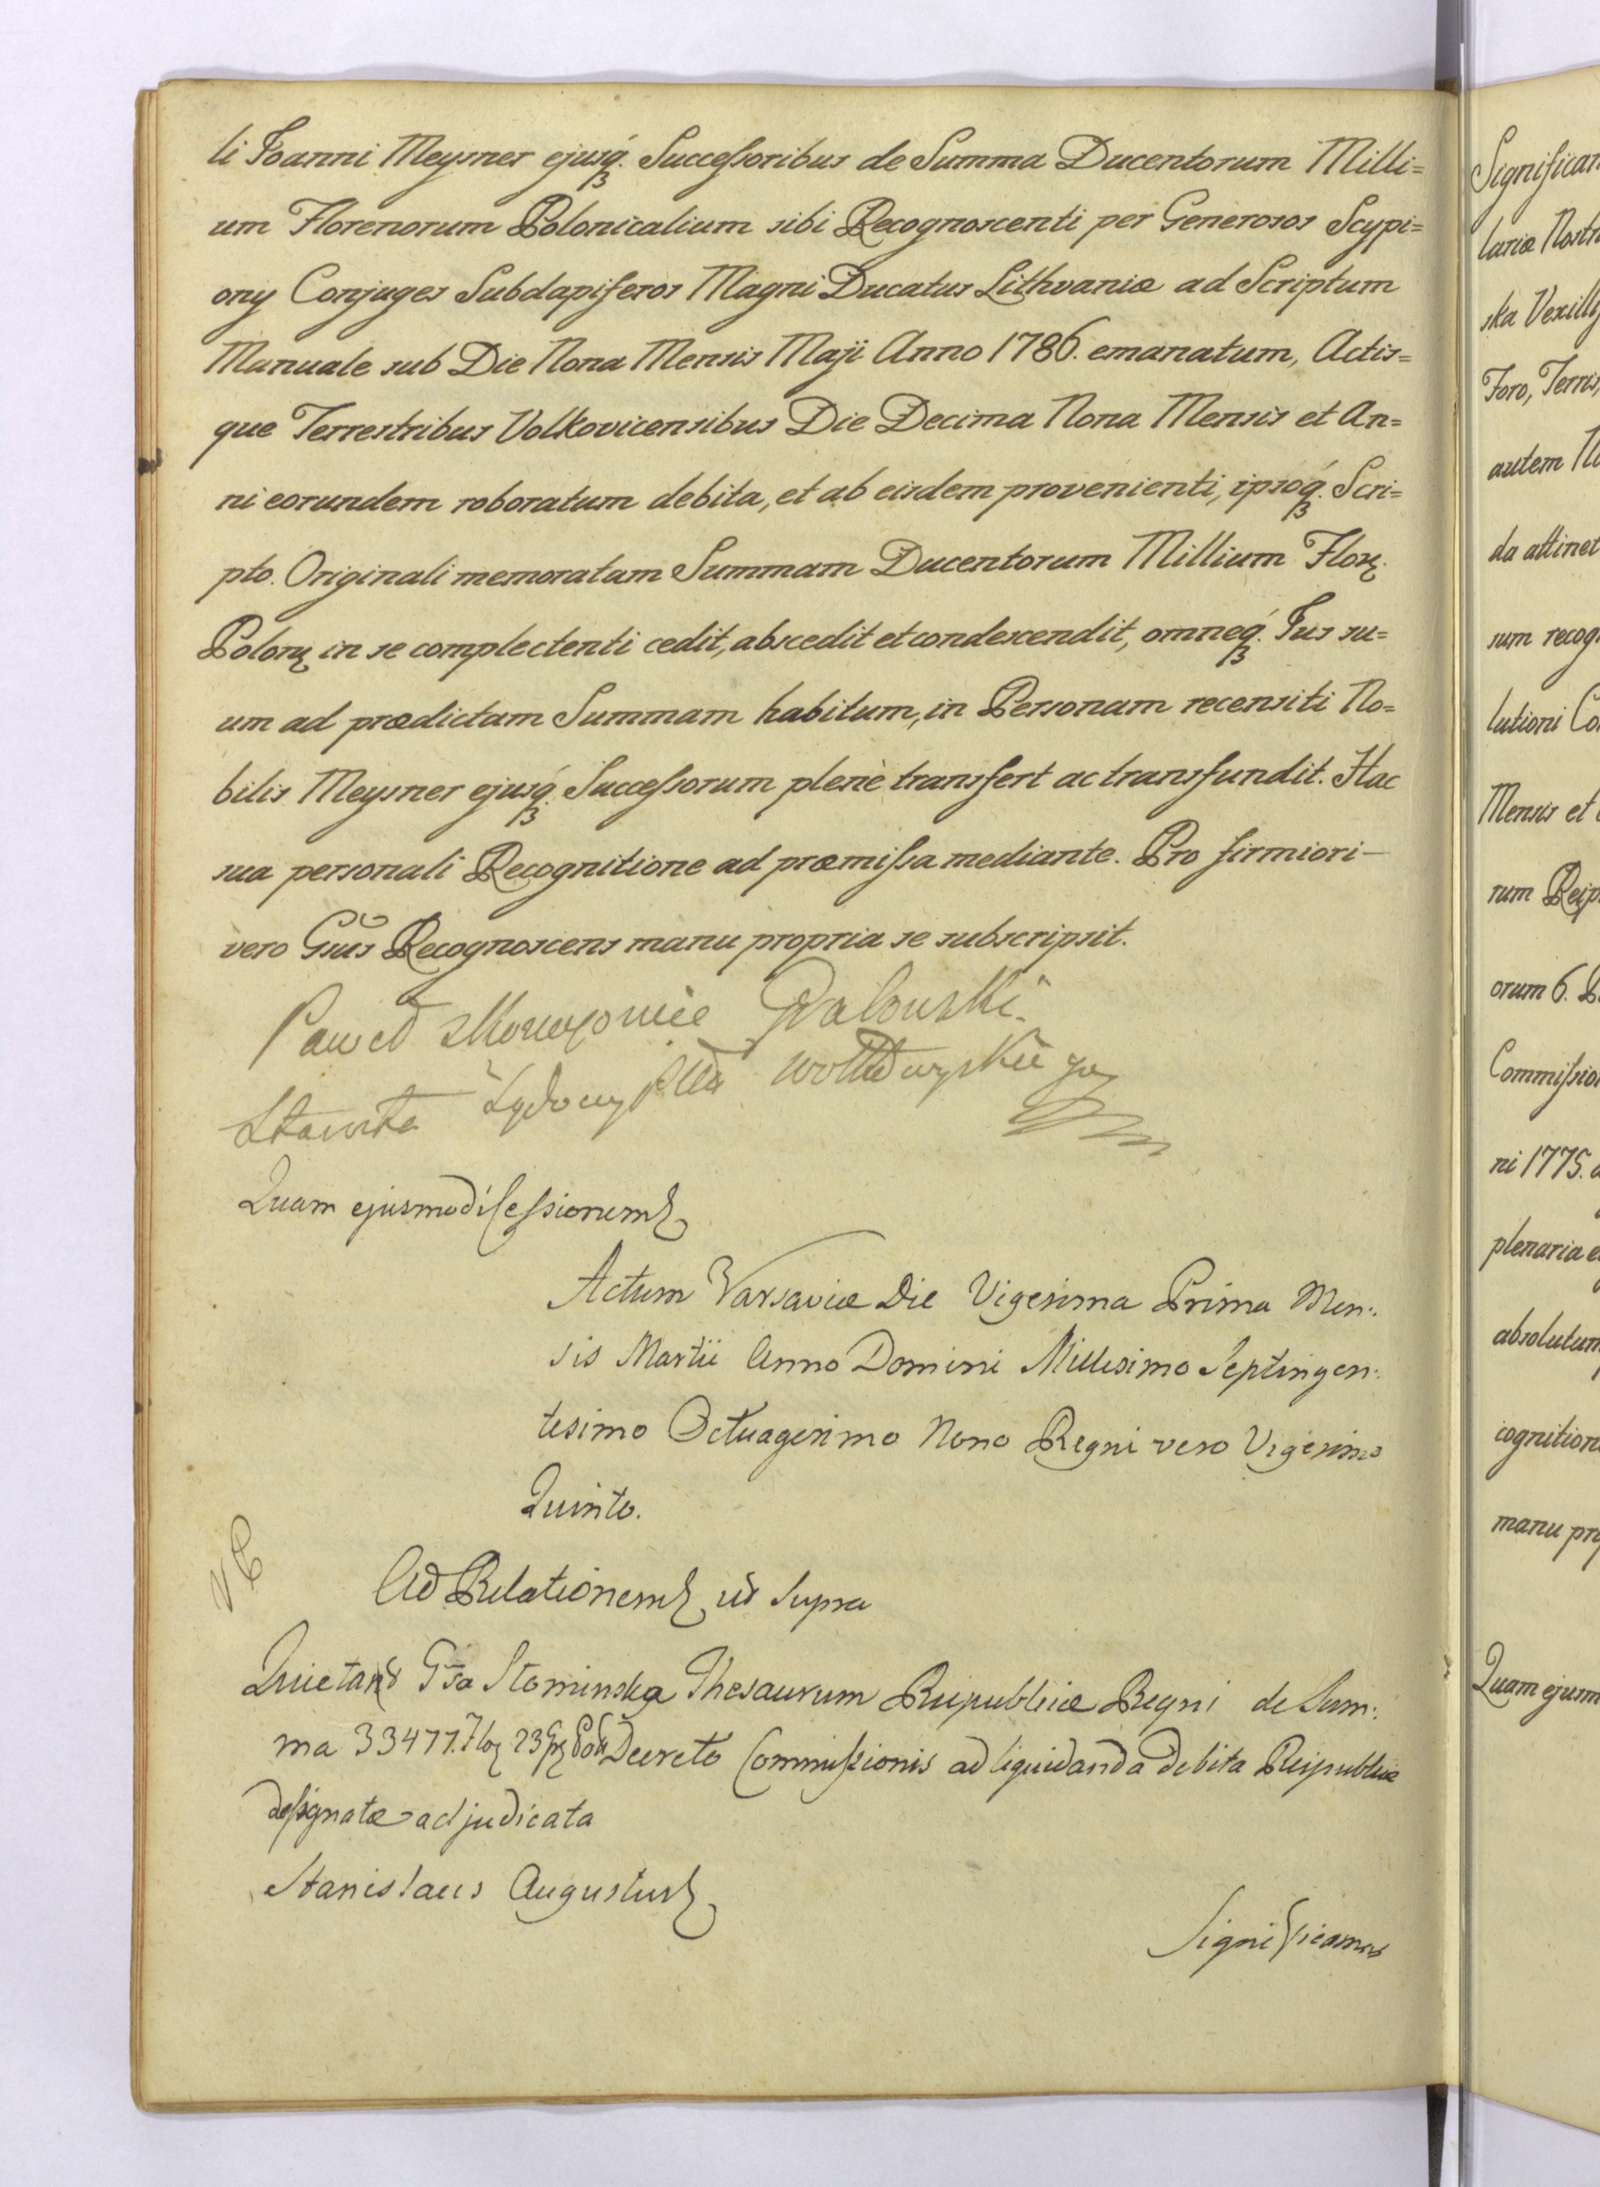 li Joanni Meysner ejusq́ꝫ. Successoribus de Summa Ducentorum Milli=
um Florenorum Polonicalium sibi Recognoscenti per Generosos Scypi=
ony Conjuges Subdapiferos Magni Ducatus Lithvaniæ ad Scriptum
Manuale sub Die Nona Mensis Maji Anno 1786. emanatum, Actis=
que Terrestribus Volkovicensibus Die Decima Nona Mensis et An=
ni eorundem roboratum debita, et ab eisdem provenienti, ipsoq́ꝫ. Scri=
pto. Originali memoratam Summam Ducentorum Millium Floꝝ.
Poloꝝ in se complectenti cedit, abscedit et condescendit, omneq́ꝫ. Jus su=
um ad prædictam Summam habitum, in Personam recensiti No=
bilis Meysner ejusq́ꝫ. Successorum plenè transfert ac transfundit. Hac
sua personali Recognitione ad præmissa mediante. Pro firmiori
vero Gsūs Recognoscens manu propria se subscripsit.
Paweł
Quam ejusmodi Cessionem
Actum Varsaviæ Die Vigesima Prima Men:
sis Martii Anno Domini Millesimo Septingen:
tesimo Octuagesimo Nono Regni vero Vigesimo
Quinto.
Ad Relationem ut supra
Quietat Gsa Slominska Thesaurum Reipublicæ Regni de Sum:
ma 33477. Floꝝ 23 Decreto Commissionis ad liquidanda debita Reipublicæ
designatæ adjudicata
Stanislaus Augustus
Significamus
Significam
lariæ Nostr
ska Vexilly
Foro, Terris,
autem
da attinet
sum recog
lutioni Co
Mensis et
rum Reip
orum 6.
Commissio
ni 1775.
plenaria e
absolutum
cognition
manu pro
Quam ejusm